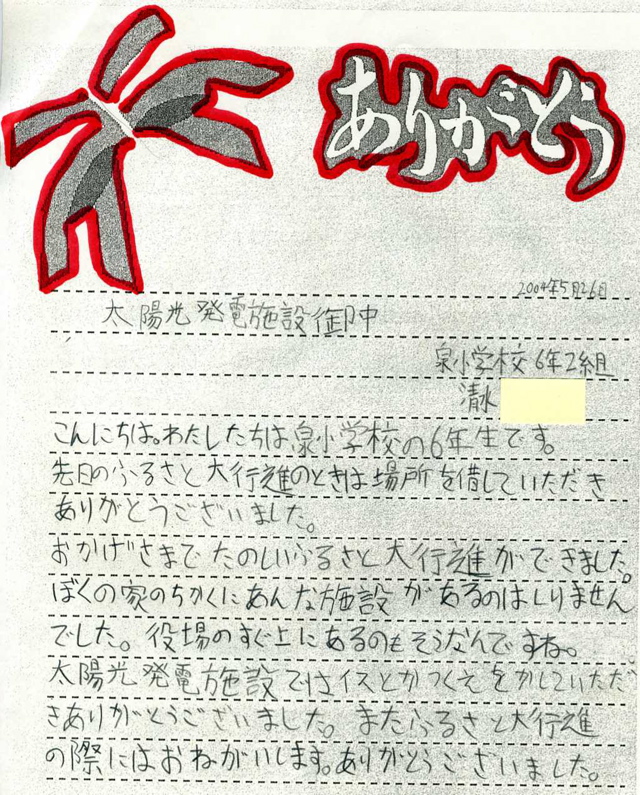 ありがとう
2004年5月26日
太陽光発電施設御中
泉小学校6年2組
清水
こんにちは。わたしたちは泉小学校の6年生です。
先日のふるさと大行進のときは場所を借していただき
ありがとうございました。
おかげさまでたのしいふるさと大行進ができました。
ぼくの家のちかくにあんな施設があるのはしりません
でした。役場のすぐ上にあるのもそうなんですね。
太陽光発電施設ではイスとかつくえをかしていただ
きありがとうございました。またふるさと大行進
の際にはおねがいします。ありがとうございました。